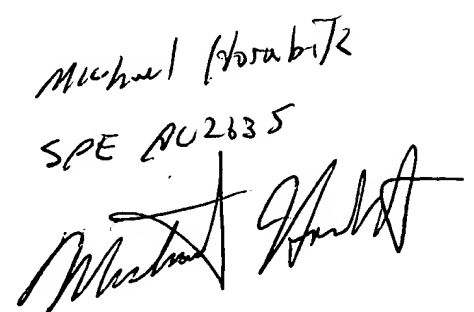 Michael Horabik
SPE AU2635
Michael Horabik